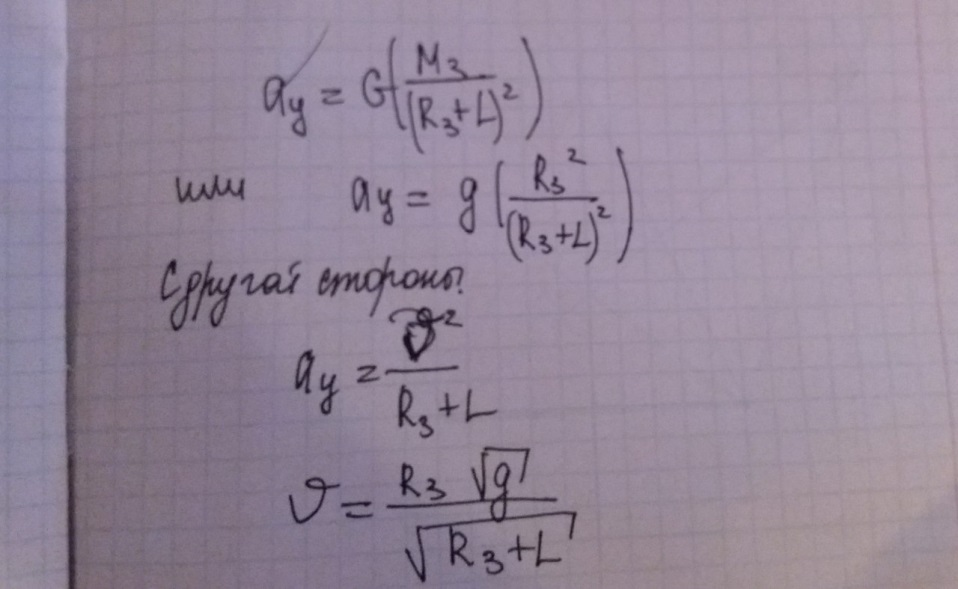 ay = G(M₃/(R₃+L)²)
или ay = g(R₃²/(R₃+L)²)
С другой стороны:
ay = υ²/(R₃+L)
υ = R₃√g/√(R₃+L)